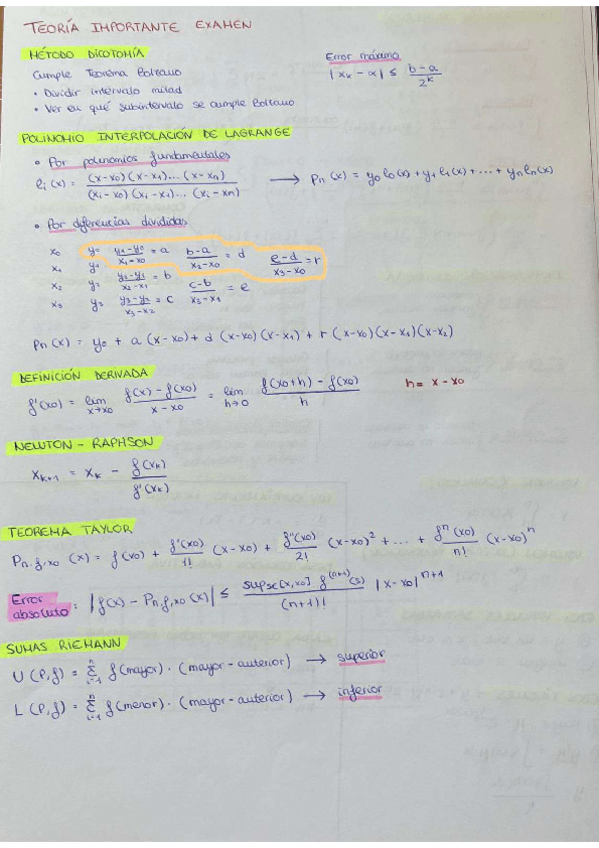 TEORÍA IMPORTANTE EXAMEN
MÉTODO DICOTOMÍA
Cumple Teorema Bolzano
• Dividir intervalo mitad
• Ver en qué subintervalo se cumple Bolzano
Error máximo
|xₖ - α| ≤ (b-a)/2ᵏ
POLINOMIO INTERPOLACIÓN DE LAGRANGE
• Por polinomios fundamentales
ℓᵢ(x) = (x-x₀)(x-x₁)...(x-xₙ) / (xᵢ-x₀)(xᵢ-x₁)...(xᵢ-xₙ) → Pₙ(x) = y₀ℓ₀(x) + y₁ℓ₁(x) + ... + yₙℓₙ(x)
• Por diferencias divididas
x₀ y₀ (y₁-y₀)/(x₁-x₀) = a (b-a)/(x₂-x₀) = d (e-d)/(x₃-x₀) = r
x₁ y₁
x₂ y₂ (y₂-y₁)/(x₂-x₁) = b (c-b)/(x₃-x₁) = e
x₃ y₃ (y₃-y₂)/(x₃-x₂) = c
Pₙ(x) = y₀ + a(x-x₀) + d(x-x₀)(x-x₁) + r(x-x₀)(x-x₁)(x-x₂)
DEFINICIÓN DERIVADA
f'(x₀) = lim x→x₀ (f(x)-f(x₀))/(x-x₀) = lim h→0 (f(x₀+h) - f(x₀))/h h = x - x₀
NEWTON - RAPHSON
xₖ₊₁ = xₖ - f(xₖ)/f'(xₖ)
TEOREMA TAYLOR
Pₙ,f,x₀(x) = f(x₀) + f'(x₀)/1! (x-x₀) + f''(x₀)/2! (x-x₀)² + ... + fⁿ(x₀)/n! (x-x₀)ⁿ
Error absoluto: |f(x) - Pₙ,f,x₀(x)| ≤ sup s∈[x,x₀] f⁽ⁿ⁺¹⁾(s) / (n+1)! |x-x₀|ⁿ⁺¹
SUMAS RIEMANN
U(P,f) = Σ i=1 n f(mayor)·(mayor-anterior) → superior
L(P,f) = Σ i=1 n f(menor)·(mayor-anterior) → inferior